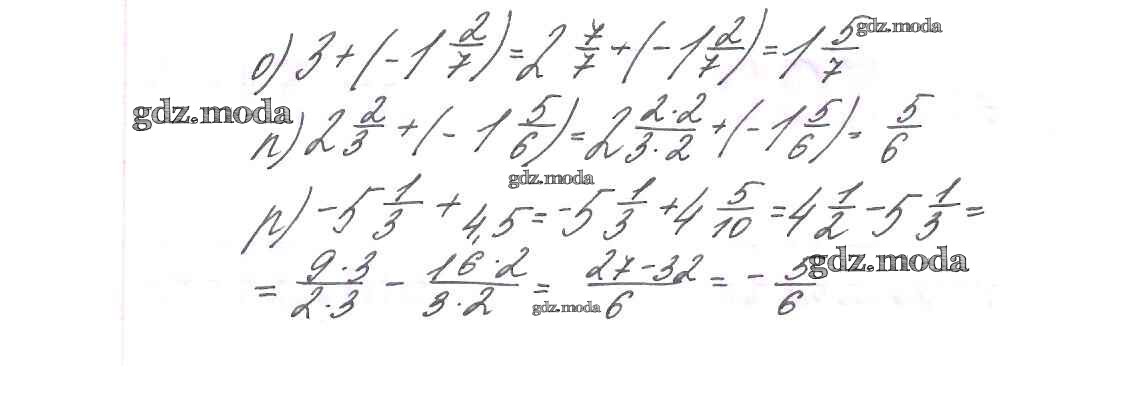 о) 3 + (-1 2/7) = 2 7/7 + (-1 2/7) = 1 5/7
gdz.moda
gdz.moda
п) 2 2/3 + (-1 5/6) = 2 2·2/3·2 + (-1 5/6) = 5/6
gdz.moda
р) -5 1/3 + 4,5 = -5 1/3 + 4 5/10 = 4 1/2 - 5 1/3 =
= 9·3/2·3 - 16·2/3·2 = 27-32/6 = - 5/6
gdz.moda
gdz.moda